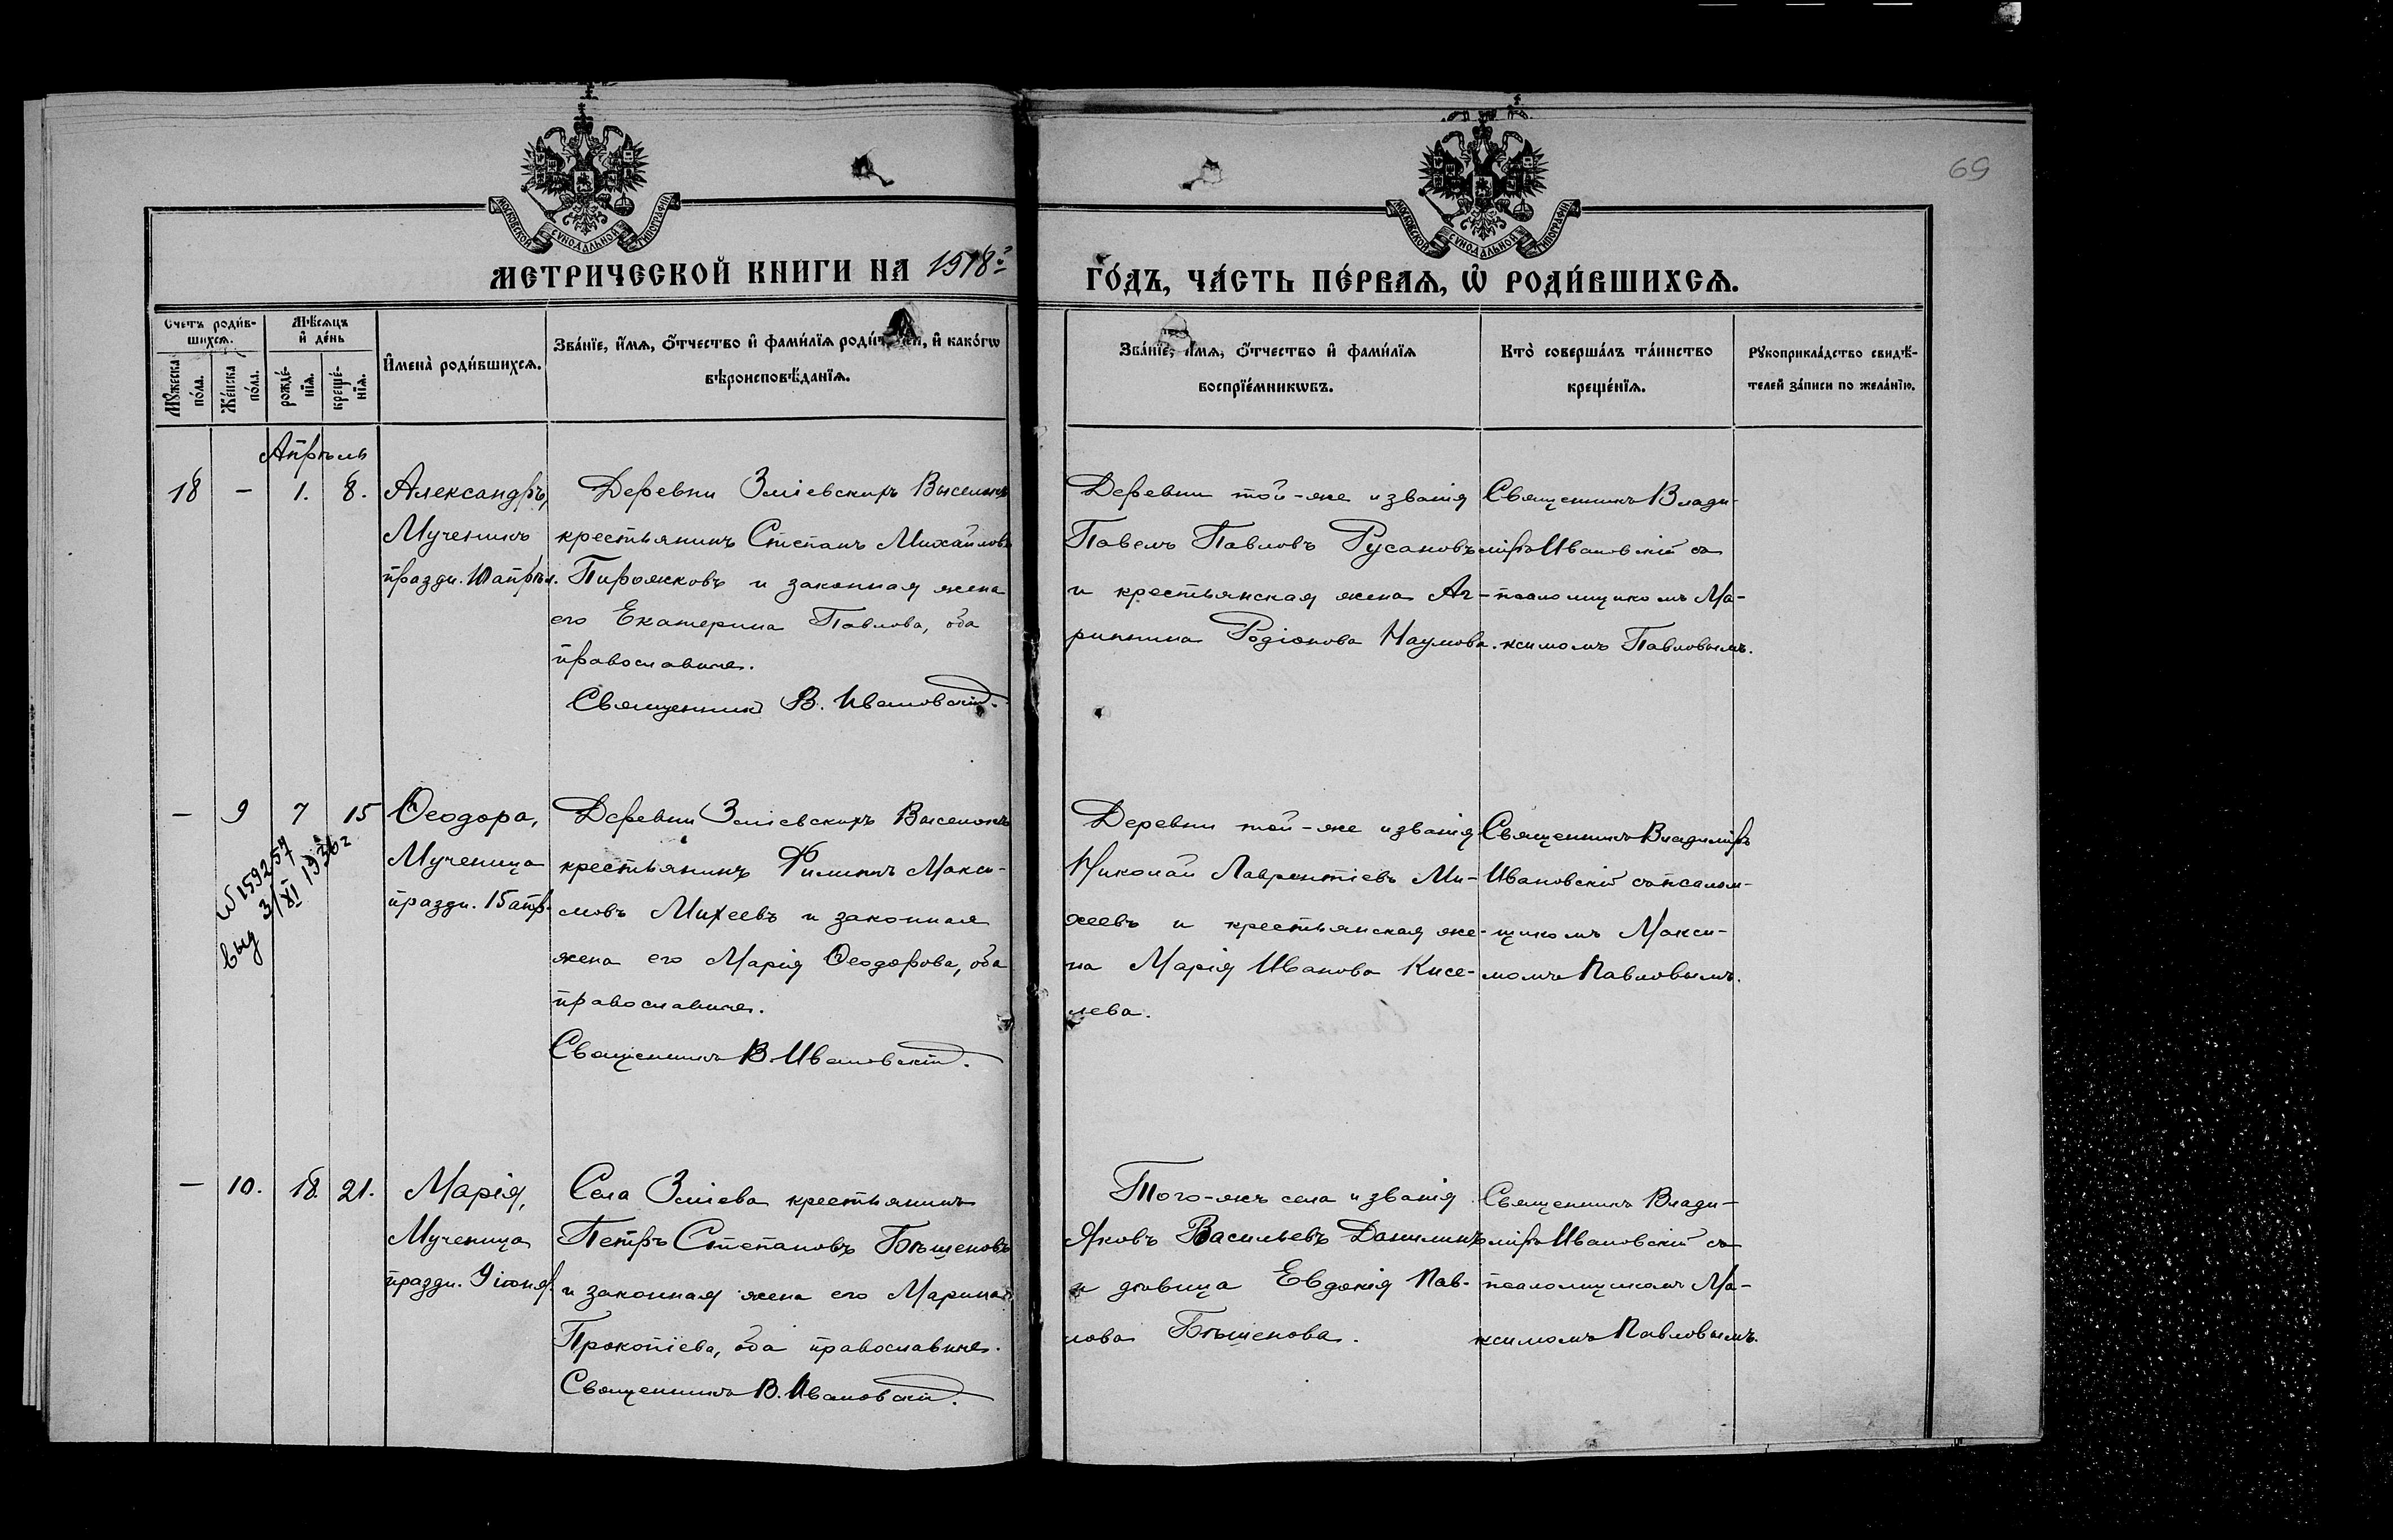 69
МОСКОВСКОЙ СѴНОДАЛЬНОЙ ТИПОГРАФІИ
МОСКОВСКОЙ СѴНОДАЛЬНОЙ ТИПОГРАФІИ
МЕТРИЧЕСКОЙ КНИГИ НА 1918 г
ГО́ДЪ, ЧА́СТЬ ПЕ́РВАѦ, Ѡ҆ РОДИ́ВШИХСѦ.
Счетъ роди́в-
шихсѧ.
Мꙋжеска по́ла.
Же́нска по́ла.
Мѣ́сѧцъ
и҆ де́нь
рожде́-
нїѧ.
креще́-
нїѧ.
И҆мена̀ роди́вшихсѧ.
Зва́нїе, и҆́мѧ, ѻ҆́тчество и҆ фами́лїѧ роди́телей, и҆ како́гѡ
вѣроисповѣ́данїѧ.
Зва́нїе, и҆́мѧ, ѻ҆́тчество и҆ фами́лїѧ
воспрїе́мникѡвъ.
Кто̀ соверша́лъ та́инство
креще́нїѧ.
Рꙋкоприкла́дство свидѣ́-
телей за́писи по жела́нїю.
Апрѣль
18 - 1. 8.
Александръ,
Мученикъ
праздн. 10 апрѣл.
Деревни Зміевскихъ Выселокъ
крестьянинъ Степанъ Михайловъ
Пирожковъ и законная жена
его Екатерина Павлова, оба
православные.
Священникъ В. Ивановскій.
Деревни той-же и званія
Павелъ Павловъ Русановъ
и крестьянская жена Аг-
риппина Родіонова Наумова.
Священникъ Влади-
міръ Ивановскій съ
псаломщикомъ Ма-
ксимомъ Павловымъ.
- 9 7 15
№ 159257
выд 3/XI 1936 г
Ѳеодора,
Мученица
праздн. 15 апр.
Деревни Зміевскихъ Выселокъ
крестьянинъ Филиппъ Макси-
мовъ Михеевъ и законная
жена его Марія Ѳеодорова, оба
православные.
Священникъ В. Ивановскій.
Деревни той-же и званія
Николай Лаврентіевъ Ми-
хеевъ и крестьянская же-
на Марія Иванова Кисе-
лева.
Священникъ Владиміръ
Ивановскій съ псалом-
щикомъ Макси-
момъ Павловымъ.
- 10. 18. 21.
Марія,
Мученица
праздн. 9 іюня.
Села Зміева крестьянинъ
Петръ Степановъ Бѣщеновъ
и законная жена его Марина
Прокопіева, оба православные.
Священникъ В. Ивановскій.
Того-жъ села и званія
Яковъ Васильевъ Данилинъ
и дѣвица Евдокія Пав-
лова Бѣщенова.
Священникъ Влади-
міръ Ивановскій съ
псаломщикомъ Ма-
ксимомъ Павловымъ.